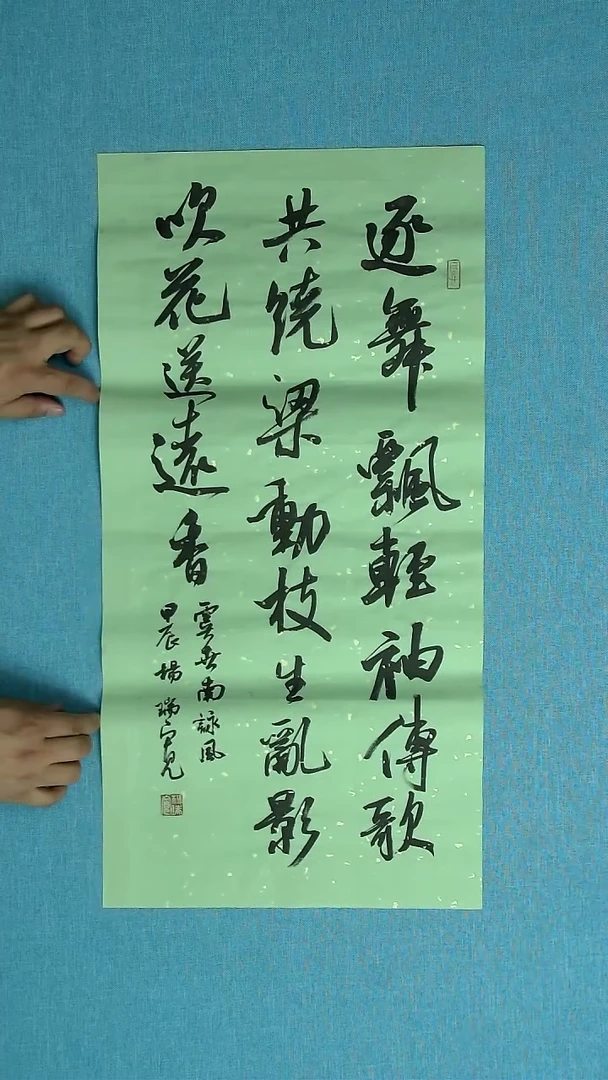 逐舞飄輕袖傳歌
共绕梁動枝生亂影
吹花送遠香
虞世南詠風
甲辰楊瑞宽